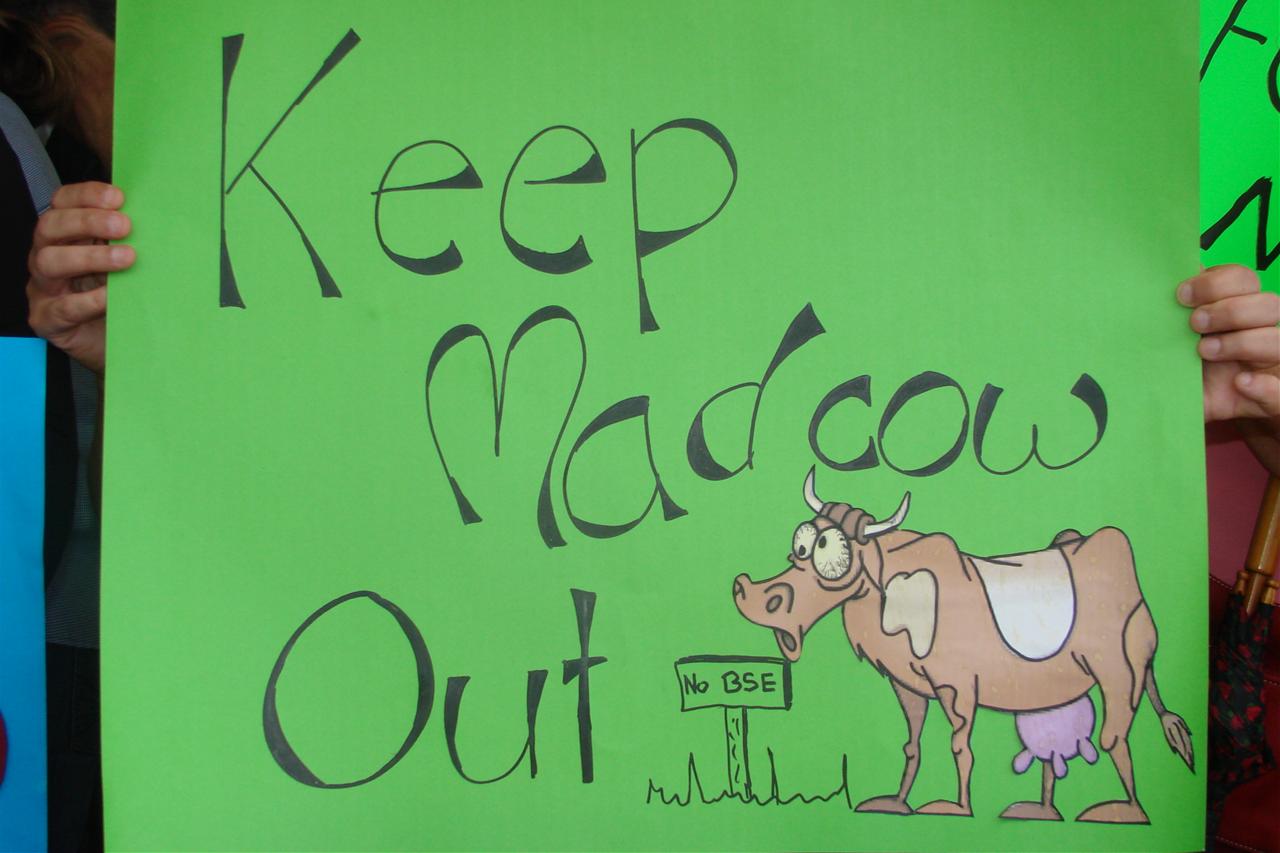 Keep
Mad cow
Out
No BSE